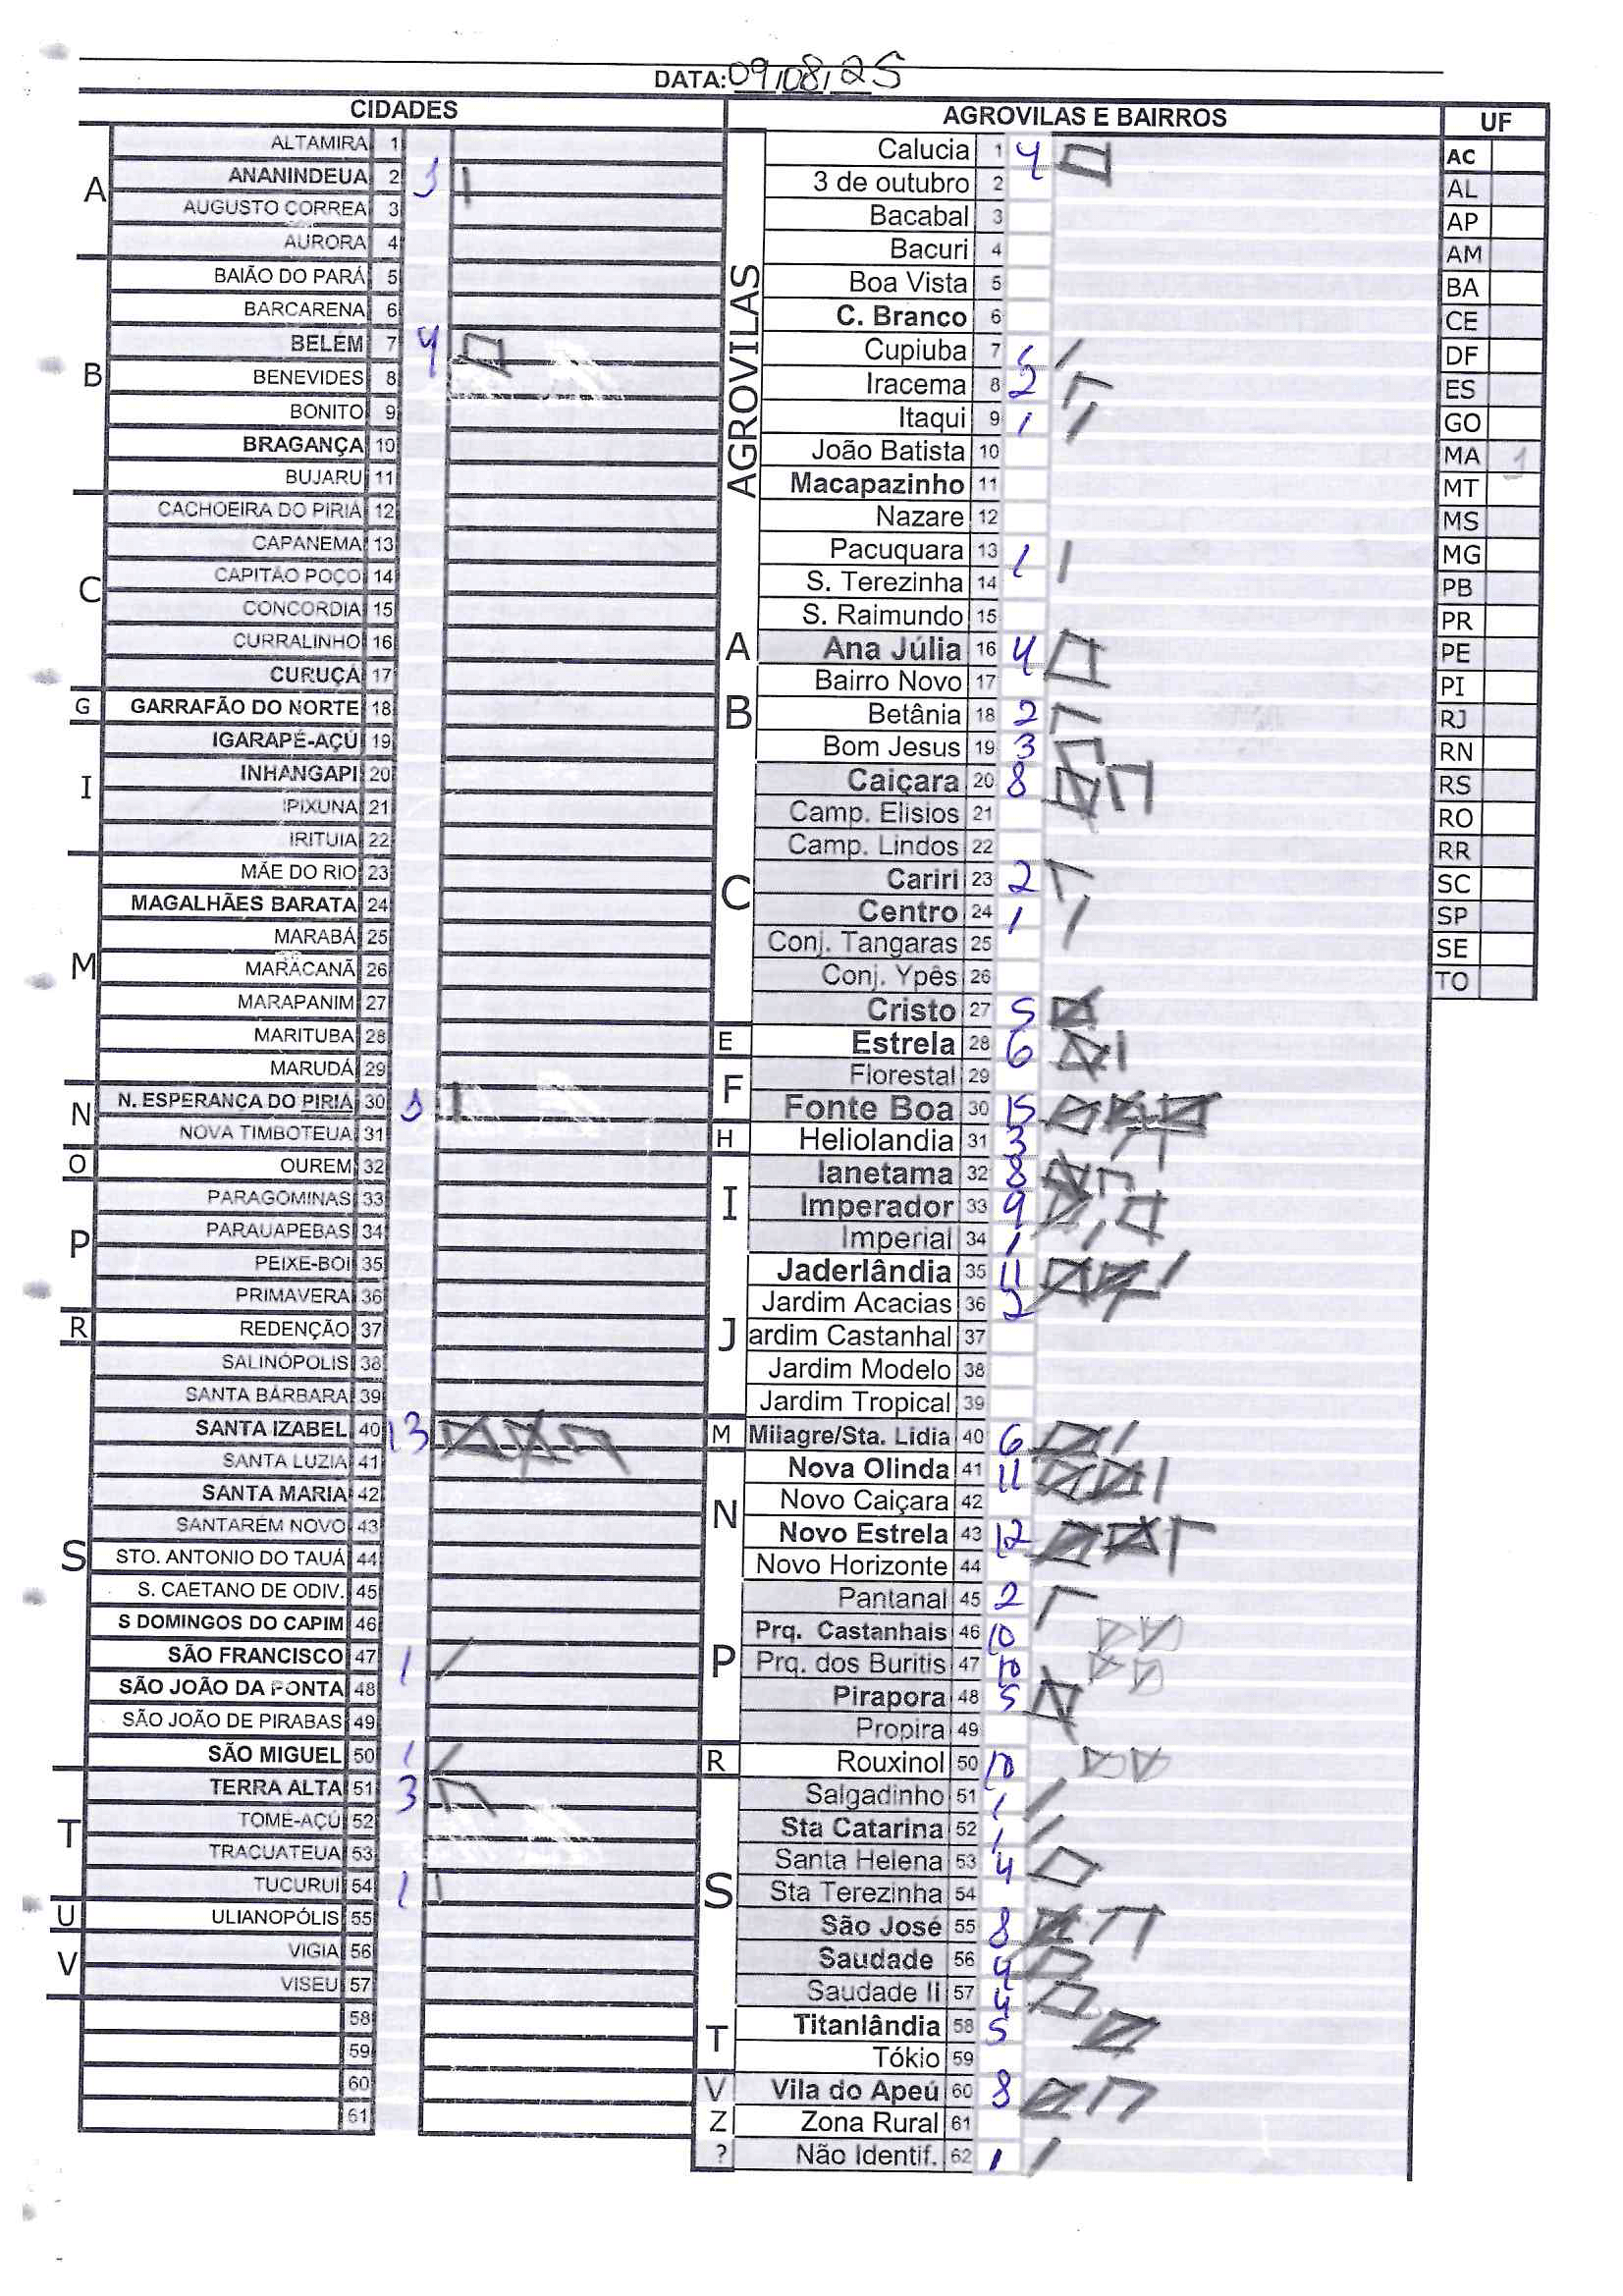 DATA: 09/08/25
CIDADES
A
ALTAMIRA 1
ANANINDEUA 2 1
AUGUSTO CORREA 3
AURORA 4
B
BAIÃO DO PARÁ 5
BARCARENA 6
BELÉM 7 4
BENEVIDES 8
BONITO 9
BRAGANÇA 10
BUJARU 11
C
CACHOEIRA DO PIRIA 12
CAPANEMA 13
CAPITÃO POÇO 14
CONCORDIA 15
CURRALINHO 16
CURUÇÁ 17
G
GARRAFÃO DO NORTE 18
I
IGARAPÉ-AÇÚ 19
INHANGAPI 20
IPIXUNA 21
IRITUIA 22
M
MÃE DO RIO 23
MAGALHÃES BARATA 24
MARABÁ 25
MARACANÃ 26
MARAPANIM 27
MARITUBA 28
MARUDÁ 29
N
N. ESPERANCA DO PIRIA 30 1
NOVA TIMBOTEUA 31
O
OUREM 32
P
PARAGOMINAS 33
PARAUAPEBAS 34
PEIXE-BOI 35
PRIMAVERA 36
R
REDENÇÃO 37
S
SALINÓPOLIS 38
SANTA BÁRBARA 39
SANTA IZABEL 40 13
SANTA LUZIA 41
SANTA MARIA 42
SANTARÉM NOVO 43
STO. ANTONIO DO TAUÁ 44
S. CAETANO DE ODIV. 45
S DOMINGOS DO CAPIM 46
SÃO FRANCISCO 47 1
SÃO JOÃO DA PONTA 48
SÃO JOÃO DE PIRABAS 49
SÃO MIGUEL 50 1
T
TERRA ALTA 51 3
TOMÉ-AÇÚ 52
TRACUATEUA 53
TUCURUI 54 1
U
ULIANOPÓLIS 55
V
VIGIA 56
VISEU 57
58
59
60
61
AGROVILAS E BAIRROS
AGROVILAS
Calucia 1 4
3 de outubro 2
Bacabal 3
Bacuri 4
Boa Vista 5
C. Branco 6
Cupiuba 7
Iracema 8 2
Itaqui 9 1
João Batista 10
Macapazinho 11
Nazare 12
Pacuquara 13 1
S. Terezinha 14
S. Raimundo 15
A
Ana Júlia 16 4
B
Bairro Novo 17
Betânia 18 2
Bom Jesus 19 3
C
Caiçara 20 8
Camp. Elisios 21
Camp. Lindos 22
Cariri 23 2
Centro 24 1
Conj. Tangaras 25
Conj. Ypês 26
Cristo 27 5
E
Estrela 28 6
F
Florestal 29
Fonte Boa 30 15
H
Heliolandia 31 3
I
Ianetama 32 8
Imperador 33 9
Imperial 34 1
J
Jaderlândia 35 11
Jardim Acacias 36 2
ardim Castanhal 37
Jardim Modelo 38
Jardim Tropical 39
M
Milagre/Sta. Lidia 40 6
N
Nova Olinda 41 11
Novo Caiçara 42
Novo Estrela 43 12
Novo Horizonte 44
P
Pantanal 45 2
Prq. Castanhais 46 10
Prq. dos Buritis 47 10
Pirapora 48 5
Propira 49
R
Rouxinol 50 10
S
Salgadinho 51 1
Sta Catarina 52 1
Santa Helena 53 4
Sta Terezinha 54
São José 55 8
Saudade 56 4
Saudade II 57 4
T
Titanlândia 58 5
Tókio 59
V
Vila do Apeú 60 8
Z
Zona Rural 61
?
Não Identif. 62 1
UF
AC
AL
AP
AM
BA
CE
DF
ES
GO
MA 1
MT
MS
MG
PB
PR
PE
PI
RJ
RN
RS
RO
RR
SC
SP
SE
TO